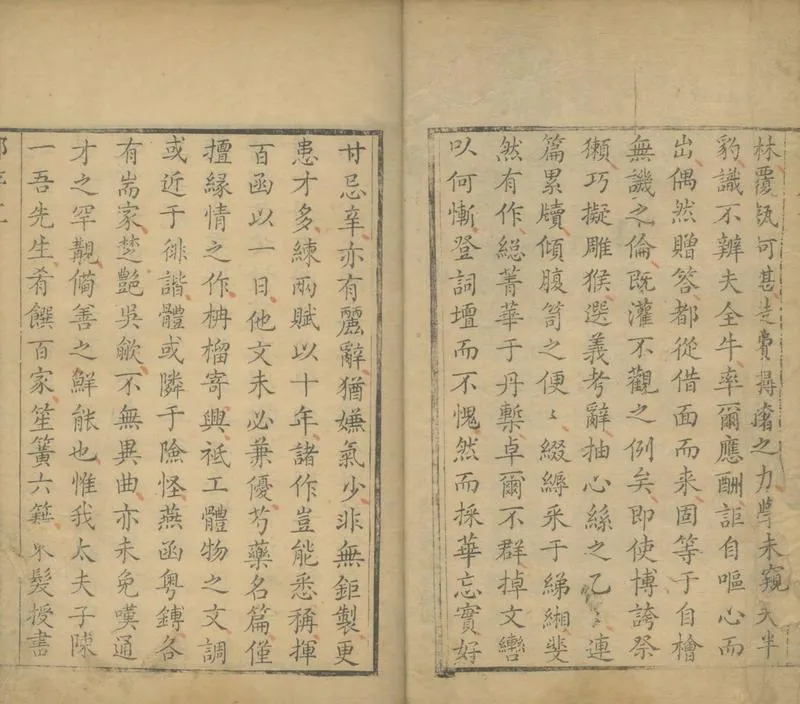 林覆瓿可甚費尋之力學未窺夫半
豹識不辨夫全牛率爾應酬詎自嘔心而
出偶然贈答都從借面而来固等于自檜
無譏之倫既灌不觀之例矣即使博誇祭
獺巧擬雕猴選義考辭抽心絲之乙〻連
篇累牘傾腹笥之便〻綴縟采于綈緗斐
然有作総菁華于丹槧卓爾不群掉文轡
以何慚登詞壇而不愧然而採華忘實好
甘忌辛亦有麗辭猶嫌氣少非無鉅製更
患才多練兩賦以十年諸作豈能悉稱揮
百函以一日他文未必兼優芍藥名篇僅
擅緣情之作柟榴寄興祗工體物之文調
或近于徘諧體或隣于險怪燕函粵鎛各
有耑家楚艷吳歈不無異曲亦未免嘆通
才之罕覯備善之鮮能也惟我太夫子陳
一吾先生肴饌百家笙簧六籍髮授書